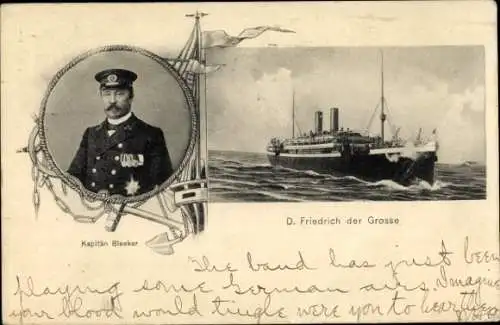 D. Friedrich der Grosse
Kapitän Bleeker
The band has just been
playing some German airs. Imagine
your blood would tingle were you to hear them